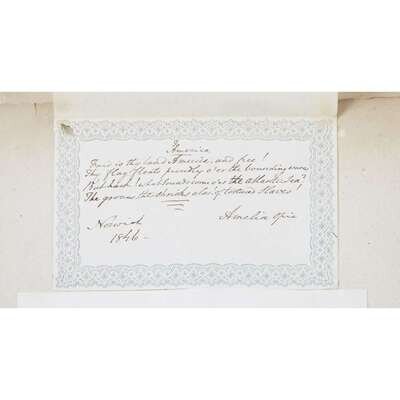 America
Fair is thy land America, and free!
Thy flag floats proudly o'er the bounding wave
But hark! what sounds come o'er the atlantic Sea?
The groans the shrieks alas! of tortured Slaves
Norwich
1846 -
Amelia Opie